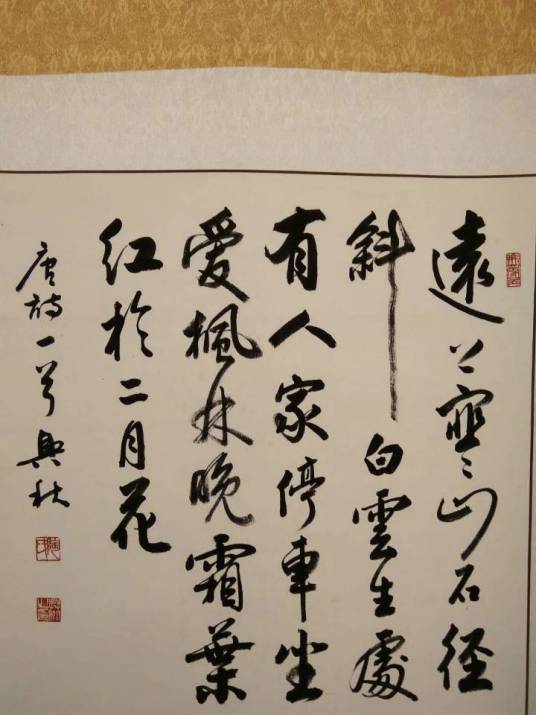 遠上寒山石径
斜白雲生處
有人家停車坐
愛楓林晚霜葉
红於二月花
唐詩一首興秋